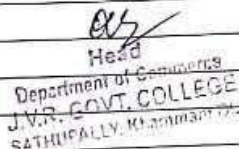 Head
Department of Commerce
J.V.R. GOVT. COLLEGE
SATHUPALLY, Khammam